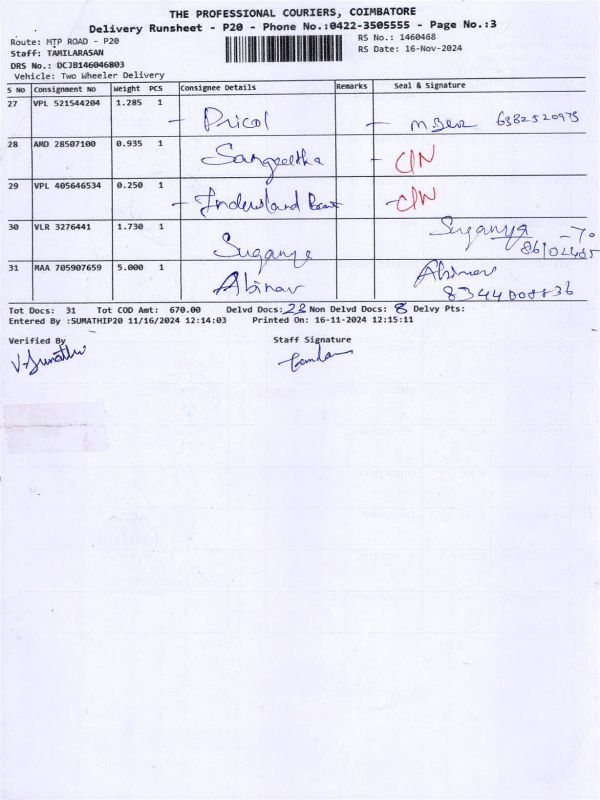 THE PROFESSIONAL COURIERS, COIMBATORE
Delivery Runsheet - P20 - Phone No.:0422-3505555 - Page No.:3
Route: MTP ROAD - P20
RS No.: 1460468
Staff: TAMILARASAN
RS Date: 16-Nov-2024
DRS No.: DCJB146046803
Vehicle: Two Wheeler Delivery
S No Consignment No Weight PCS Consignee Details Remarks Seal & Signature
27 VPL 521544204 1.285 1 - Pricol - 6382520975
28 AMD 28507100 0.935 1 Sangeetha - C/N
29 VPL 405646534 0.250 1 - Indusland Bank - C/N
30 VLR 3276441 1.730 1 Suganya Suganya - 70
86102465
31 MAA 705907659 5.000 1 Abinav Abinav
8344008836
Tot Docs: 31 Tot COD Amt: 670.00 Delvd Docs: 23 Non Delvd Docs: 8 Delvy Pts:
Entered By :SUMATHIP20 11/16/2024 12:14:03 Printed On: 16-11-2024 12:15:11
Verified By Staff Signature
V. Sumathi